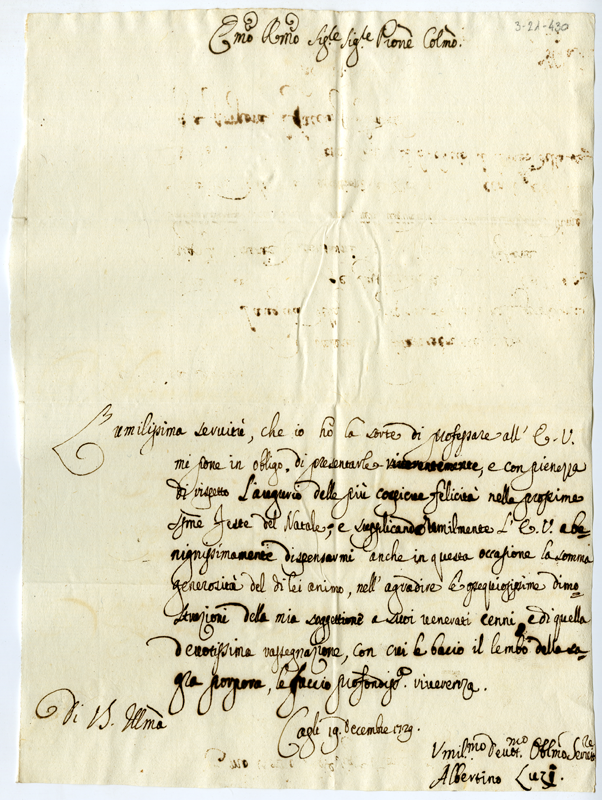 3-21-430
Emo Rmo Sigle Sigle Prone Colmo.
L'umilissima servitù, che io hò la sorte di professare all' E. V.
mi pone in obligo, di presentarle riverentemente, e con pienezza
di rispetto l'augurio delle più copiose felicità nelle prossime
Ssme Feste del Natale; e supplicando umilmente l' E. V. a be-
nignissimamente dispensarmi anche in questa occasione la somma
generosità del di lei animo, nell' agradire le ossequiosissime dimo-
strazioni della mia soggettione a suoi venerati cenni, e di quella
devotissima rassegnazione, con cui le bacio il lembo della sa-
gra porpora, le faccio profondisa. riverenza.
Di V. Illma
Cagli 19. Decembre 1729.
Vmilmo Devotmo Oblmo Servitre
Albertino Luzi.